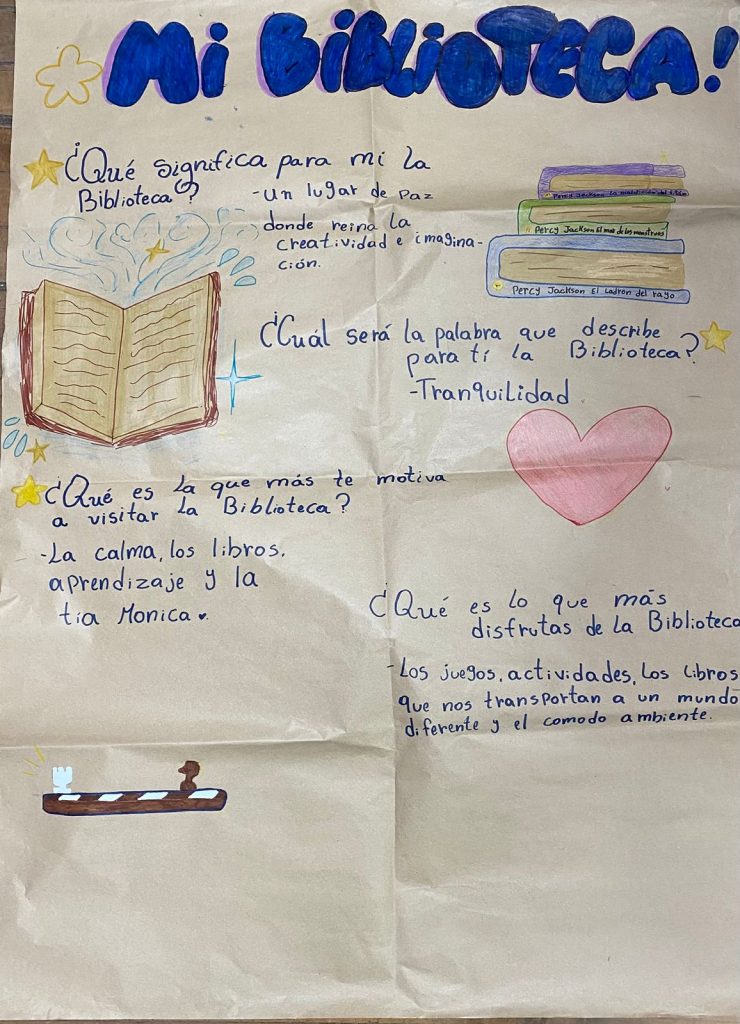 Mi BiBLiOTECA!
¿Qué significa para mi la
Biblioteca?
-un lugar de Paz
donde reina la
creatividad e imagina-
ción.
Percy Jackson La maldición del titán
Percy Jackson El mar de los monstruos
Percy Jackson El Ladron del rayo
¿Cuál será la palabra que describe
para tí la Biblioteca?
-Tranquilidad
¿Qué es La que más te motiva
a visitar La Biblioteca?
-La calma, los libros,
aprendizaje y la
tía Monica
¿Qué es lo que más
disfrutas de la Biblioteca
-Los juegos, actividades, Los Libros
que nos transportan a un mundo
diferente y el comodo ambiente.